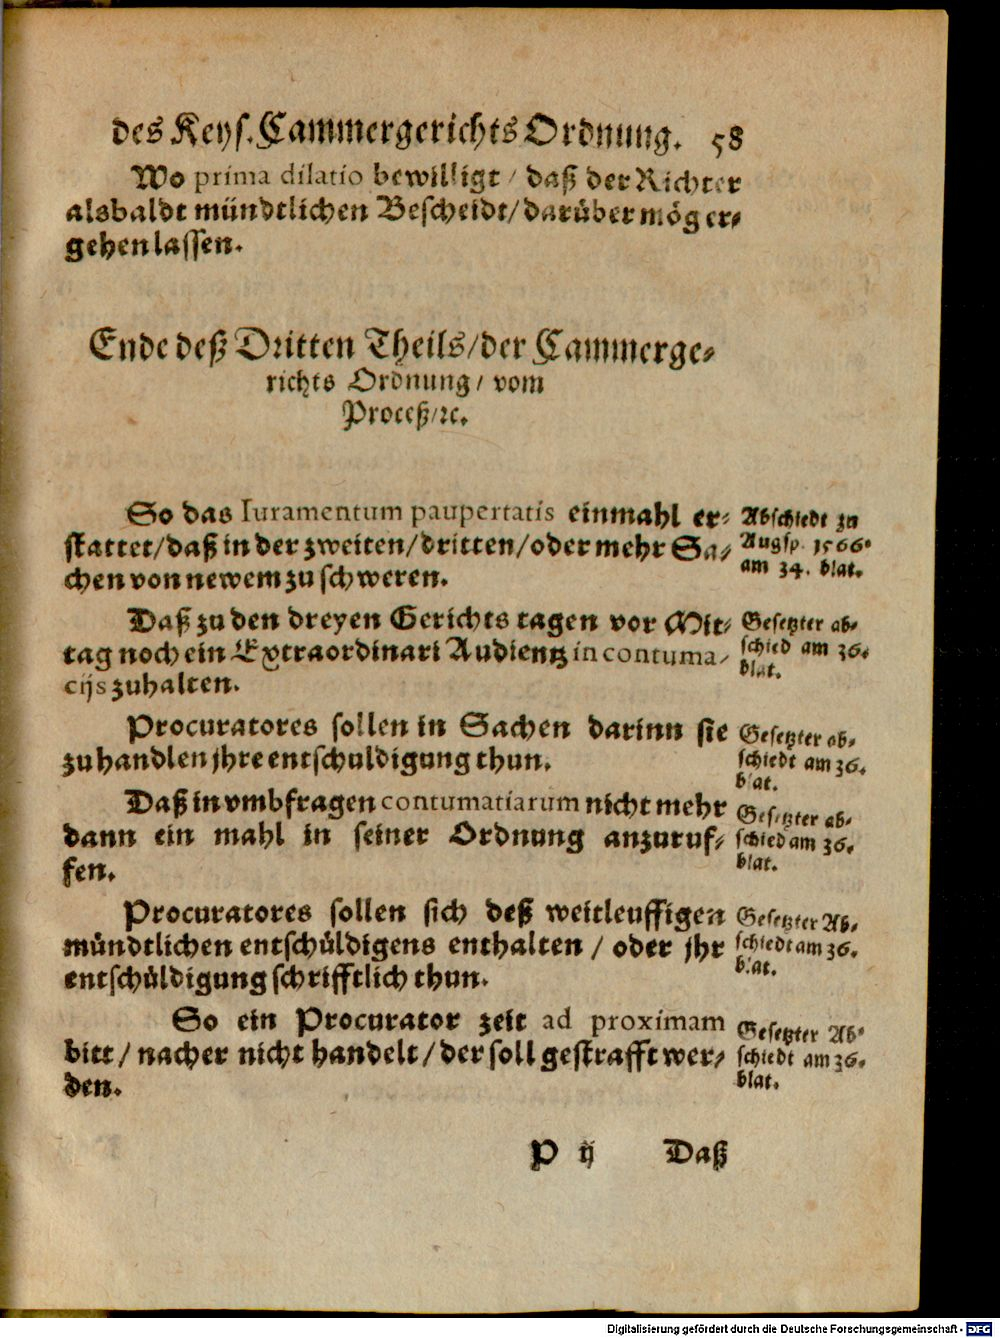 des Keys. Cammergerichts Ordnung. 58
Wo prima dilatio bewilligt / daß der Richter
alsbaldt mündtlichen Bescheidt / darüber mög er-
gehen lassen.
Ende deß Dritten Theils / der Cammerge-
richts Ordnung / vom
Proceß / ꝛc.
So das Iuramentum paupertatis einmahl er-
stattet / daß in der zweiten / dritten / oder mehr Sa-
chen von newem zu schweren.
Abschiedt zu
Augsp. 1566.
am 34. blat.
Daß zu den dreyen Gerichts tagen vor Mit-
tag noch ein Extraordinari Audientz in contuma-
cijs zuhalten.
Gesetzter ab-
schied am 36.
blat.
Procuratores sollen in Sachen darinn sie
zuhandlen jhre entschuldigung thun.
Gesetzter ab-
schiedt am 36.
blat.
Daß in vmbfragen contumatiarum nicht mehr
dann ein mahl in seiner Ordnung anzuruf-
fen.
Gesetzter ab-
schied am 36.
blat.
Procuratores sollen sich deß weitleuffigen
mündtlichen entschüldigens enthalten / oder jhr
entschüldigung schrifftlich thun.
Gesetzter Ab-
schiedt am 36.
blat.
So ein Procurator zeit ad proximam
bitt / nacher nicht handelt / der soll gestrafft wer-
den.
Gesetzter Ab-
schiedt am 36.
blat.
P ij Daß
Digitalisierung gefördert durch die Deutsche Forschungsgemeinschaft - DFG